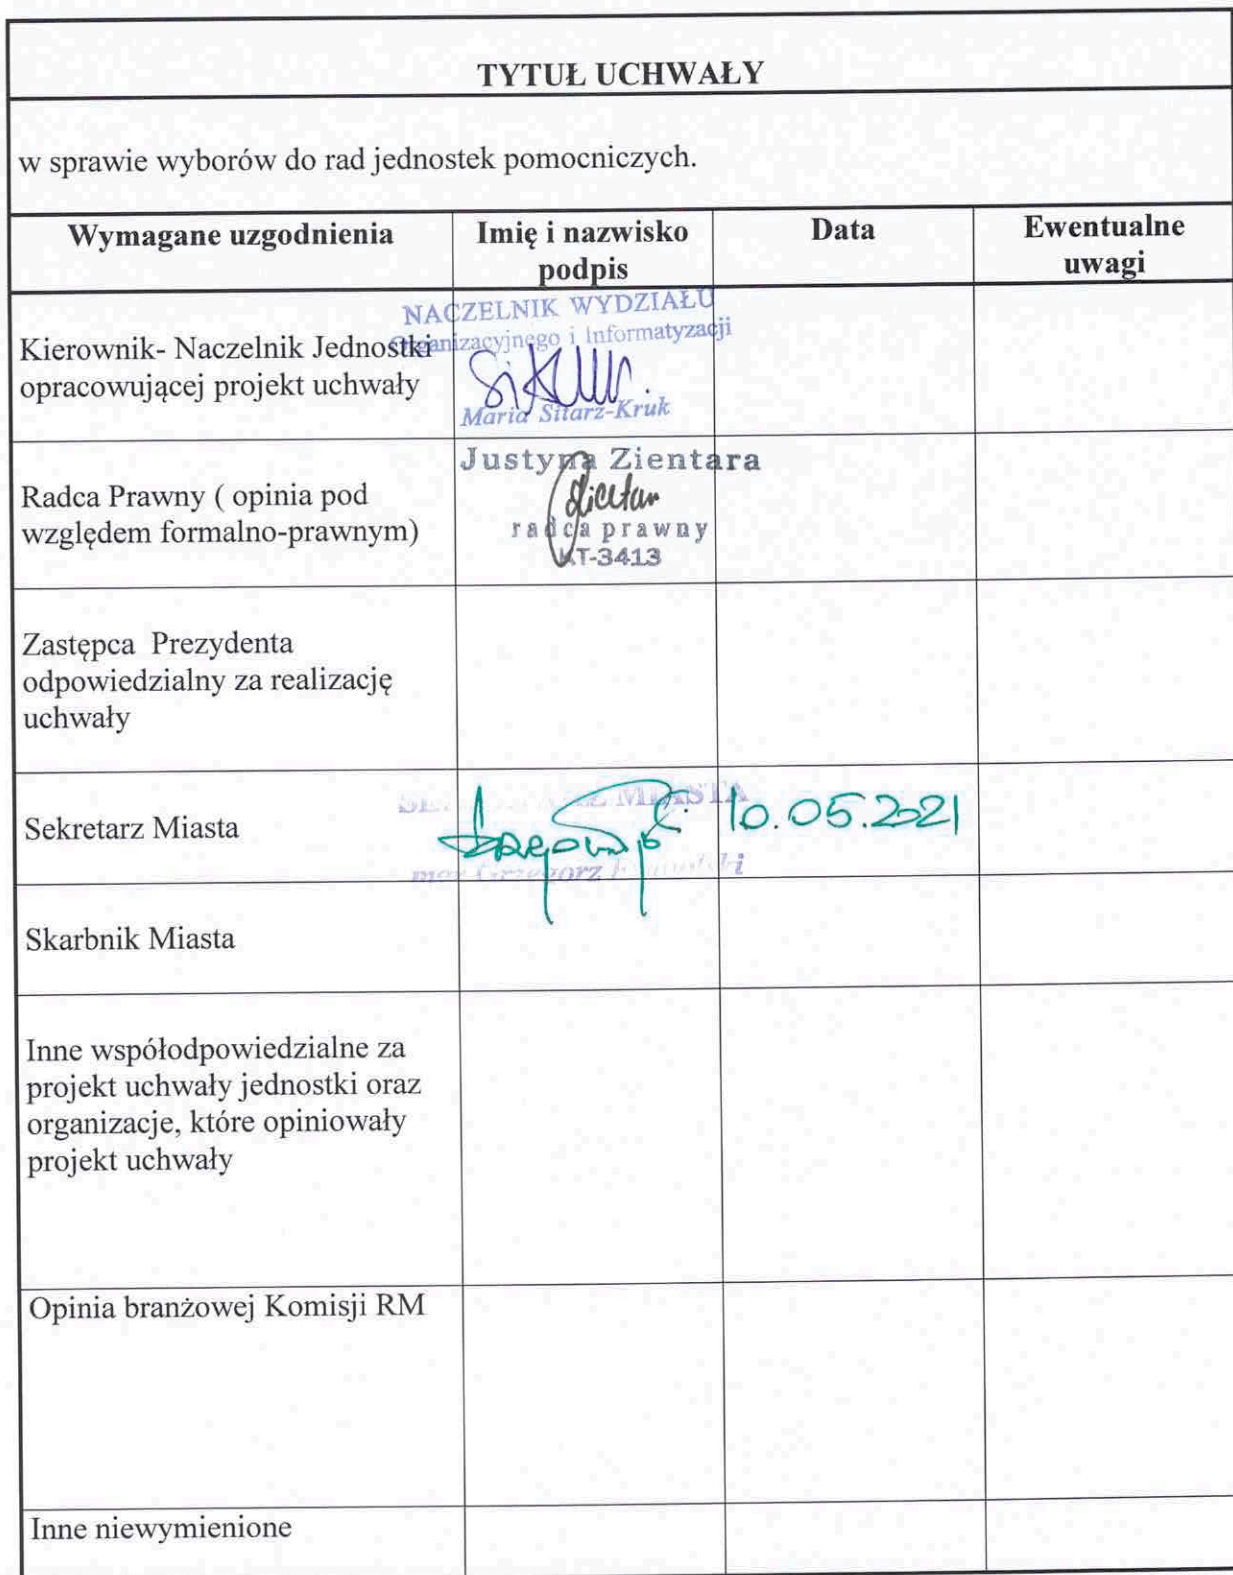 TYTUŁ UCHWAŁY
w sprawie wyborów do rad jednostek pomocniczych.
Wymagane uzgodnienia
Imię i nazwisko
podpis
Data
Ewentualne
uwagi
Kierownik- Naczelnik Jednostki
opracowującej projekt uchwały
NACZELNIK WYDZIAŁU
Organizacyjnego i Informatyzacji
Maria Sitarz-Kruk
Radca Prawny ( opinia pod
względem formalno-prawnym)
Justyna Zientara
radca prawny
KT-3413
Zastępca Prezydenta
odpowiedzialny za realizację
uchwały
Sekretarz Miasta
SEKRETARZ MIASTA
mgr Grzegorz
10.05.2021
Skarbnik Miasta
Inne współodpowiedzialne za
projekt uchwały jednostki oraz
organizacje, które opiniowały
projekt uchwały
Opinia branżowej Komisji RM
Inne niewymienione